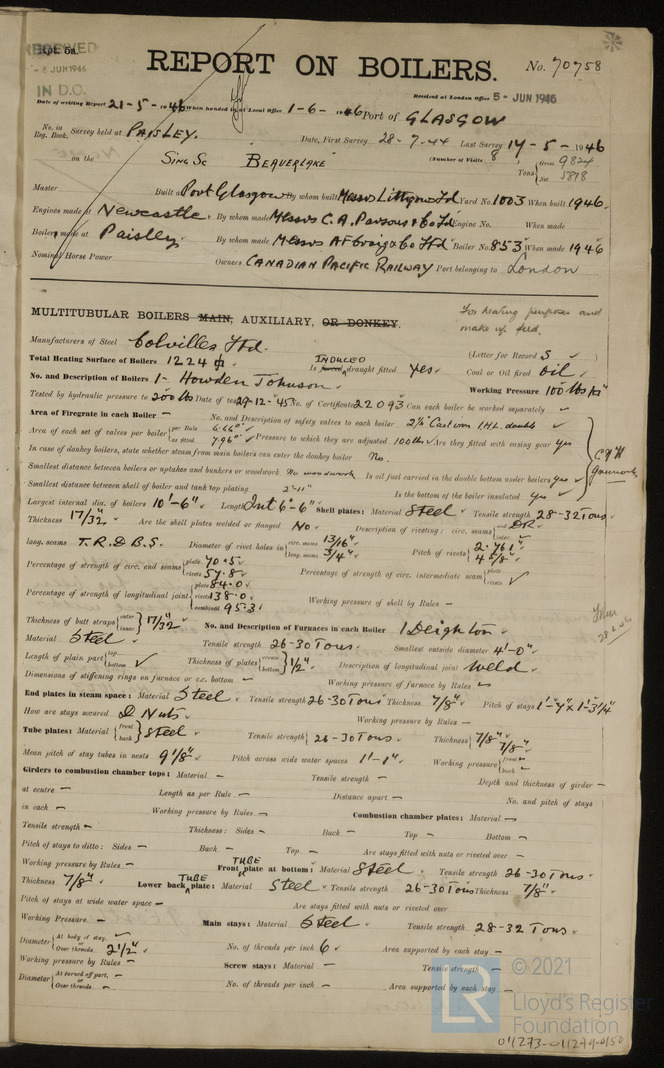 Rpt. 5a.
RECEIVED
- 6 JUN 1946
IN D.O.
REPORT ON BOILERS.
No. 70758
Received at London Office 5 - JUN 1946
Date of writing Report 21-5-1946 When handed in at Local Office 1-6-1946 Port of GLASGOW
No. in Reg. Book. Survey held at PAISLEY. Date, First Survey 28-7-44 Last Survey 14-5-1946
on the SING SC BEAVERLAKE (Number of Visits 8) Tons { Gross 9824 Net 5898
Master Built at Port Glasgow By whom built Messrs Lithgow Ltd Yard No. 1003 When built 1946.
Engines made at Newcastle By whom made Messrs C. A. Parsons & Co Ltd Engine No. When made
Boilers made at Paisley By whom made Messrs A F Craig & Co Ltd Boiler No. 853 When made 1946
Nominal Horse Power Owners CANADIAN PACIFIC RAILWAY Port belonging to London
MULTITUBULAR BOILERS MAIN, AUXILIARY, OR DONKEY.
For heating purposes and make up feed.
Manufacturers of Steel Colvilles Ltd. (Letter for Record S)
Total Heating Surface of Boilers 1224 Is forced INDUCED draught fitted yes Coal or Oil fired oil
No. and Description of Boilers 1- Howden Johnson. Working Pressure 100 lbs
Tested by hydraulic pressure to 200 lbs Date of test 29-12-45 No. of Certificate 22093 Can each boiler be worked separately ✓
Area of Firegrate in each Boiler — No. and Description of safety valves to each boiler 2⅞" Cast iron 1 H.L. double ✓
Area of each set of valves per boiler { per Rule 6.66" as fitted 7.96" Pressure to which they are adjusted 100 lbs Are they fitted with easing gear yes
In case of donkey boilers, state whether steam from main boilers can enter the donkey boiler No.
Smallest distance between boilers or uptakes and bunkers or woodwork No woodwork Is oil fuel carried in the double bottom under boilers yes
Smallest distance between shell of boiler and tank top plating 2'-11" Is the bottom of the boiler insulated yes
Largest internal dia. of boilers 10'-6" Length Int 6'-6" Shell plates: Material Steel Tensile strength 28-32 Tons
Thickness 17/32" Are the shell plates welded or flanged No Description of riveting: circ. seams { end DR inter. ✓
long. seams T.R.D.B.S. Diameter of rivet holes in { circ. seams 13/16" long. seams 3/4" Pitch of rivets { 2.761" 4 5/8"
Percentage of strength of circ. end seams { plate 70.5 rivets 57.8 Percentage of strength of circ. intermediate seam { plate rivets ✓
Percentage of strength of longitudinal joint { plate 84.0 rivets 138.0 combined 95.3 Working pressure of shell by Rules —
Thickness of butt straps { outer inner } 17/32" No. and Description of Furnaces in each Boiler 1 Deighton
Material Steel Tensile strength 26-30 Tons. Smallest outside diameter 4'-0"
Length of plain part { top bottom ✓ Thickness of plates { crown bottom } 1/2" Description of longitudinal joint Weld
Dimensions of stiffening rings on furnace or c.c. bottom — Working pressure of furnace by Rules —
End plates in steam space: Material Steel Tensile strength 26-30 Tons Thickness 7/8" Pitch of stays 1'-7" x 1'-3¼"
How are stays secured D Nuts Working pressure by Rules —
Tube plates: Material { front back } Steel Tensile strength { 26-30 Tons Thickness { 7/8" 7/8"
Mean pitch of stay tubes in nests 9 1/8" Pitch across wide water spaces 1'-1" Working pressure { front back
Girders to combustion chamber tops: Material — Tensile strength — Depth and thickness of girder —
at centre — Length as per Rule — Distance apart — No. and pitch of stays
in each — Working pressure by Rules — Combustion chamber plates: Material —
Tensile strength — Thickness: Sides — Back — Top — Bottom —
Pitch of stays to ditto: Sides — Back — Top — Are stays fitted with nuts or riveted over —
Working pressure by Rules — Front TUBE plate at bottom: Material Steel Tensile strength 26-30 Tons
Thickness 7/8" Lower back TUBE plate: Material Steel Tensile strength 26-30 Tons Thickness 7/8"
Pitch of stays at wide water space — Are stays fitted with nuts or riveted over
Working Pressure — Main stays: Material Steel Tensile strength 28-32 Tons
Diameter { At body of stay, or Over threads 2½" No. of threads per inch 6 Area supported by each stay —
Working pressure by Rules — Screw stays: Material — Tensile strength —
Diameter { At turned off part, or Over threads — No. of threads per inch — Area supported by each stay —
© 2021
Lloyd's Register
Foundation
LR
011273-011279-0150